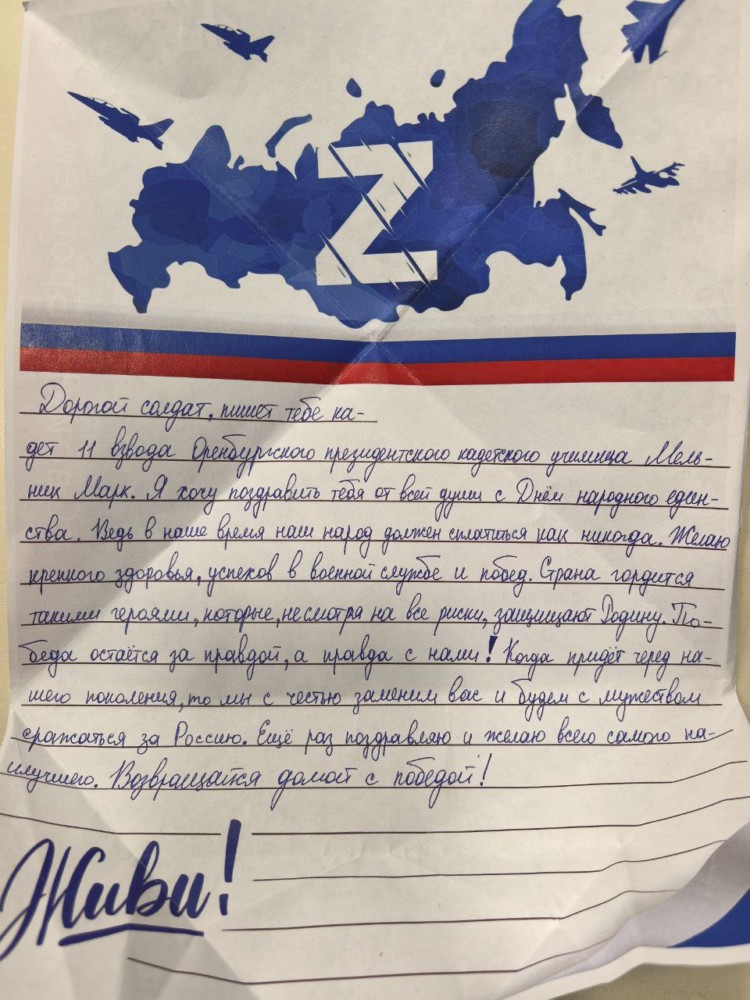 Z
Дорогой солдат, пишет тебе ка-
дет 11 взвода Оренбургского президентского кадетского училища Мель-
ник Марк. Я хочу поздравить тебя от всей души с Днём народного един-
ства. Ведь в наше время наш народ должен сплатиться как никогда. Желаю
крепкого здоровья, успехов в военной службе и побед. Страна гордится
такими героями, которые, несмотря на все риски, защищают Родину. По-
беда остаётся за правдой, а правда с нами! Когда придёт черед на-
шего поколения, то мы с честью заменим вас и будем с мужеством
сражаться за Россию. Ещё раз поздравляю и желаю всего самого на-
илучшего. Возвращайся домой с победой!
Живи!